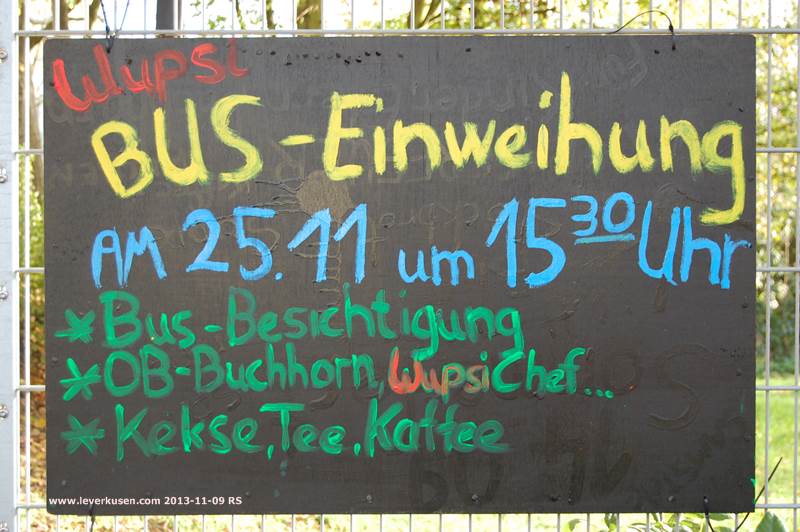 Wupsi
BUS-Einweihung
AM 25.11 um 15³⁰ Uhr
* Bus-Besichtigung
* OB-Buchhorn, Wupsi Chef...
* Kekse, Tee, Kaffee
www.leverkusen.com 2013-11-09 RS